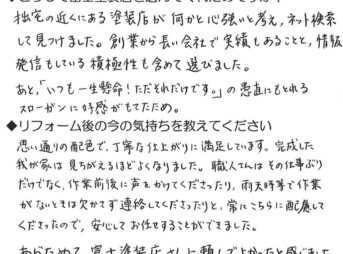 拙宅の近くにある塗装店が何かと心強いと考え、ネット検索
して見つけました。創業から長い会社で実績もあることと、情報
発信もしている積極性も含めて選びました。
あと、「いつも一生懸命！ただそれだけです。」の愚直にもとれる
スローガンに好感がもてたため。
◆リフォーム後の今の気持ちを教えてください
思い通りの配色で、丁寧な仕上がりに満足しています。完成した
我が家は見ちがえるほどよくなりました。職人さんはその仕事ぶり
だけでなく、作業前後に声をかけてくださったり、雨天時等で作業
がないときは欠かさず連絡してくださったりと、常にこちらに配慮して
くださったので、安心してお任せすることができました。